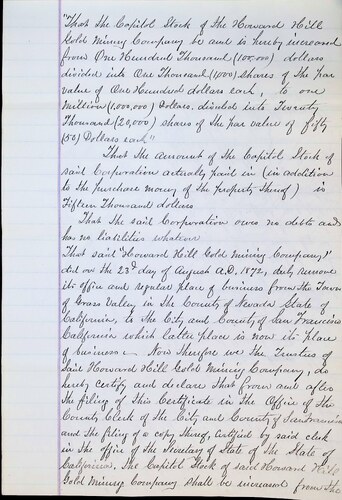 "That the Capitol Stock of the Howard Hill
Gold Mining Company be and is hereby increased
from One Hundred Thousand (100,000) dollars
divided into One Thousand (1000) shares of the par
value of One Hundred dollars each, to one
Million (1,000,000) Dollars. divided into Twenty
Thousand (20,000) shares of the par value of fifty
(50) Dollars each"
That the Amount of the Capitol Stock of
said Corporation actually paid in (in addition
to the purchase money of the property thereof) is
Fifteen Thousand dollars
That the said Corporation owes no debts and
has no liabilities whatever
That said "Howard Hill Gold Mining Company"
did on the 23d day of August A.D. 1872, duly remove
its office and regular place of business from the Town
of Grass Valley, in the County of Nevada State of
California, to the City and County of San Francisco
California which latter place is now its place
of business. Now Therefore we the Trustees of
said Howard Hill Gold Mining Company, do
hereby certify and declare that from and after
the filing of this Certificate in the Office of the
County Clerk of the City and County of San Francisco
and the filing of a copy thereof, certified by said clerk
in the office of the Secretary of State of the State of
California, The Capitol Stock of said Howard Hill
Gold Mining Company shall be increased from the